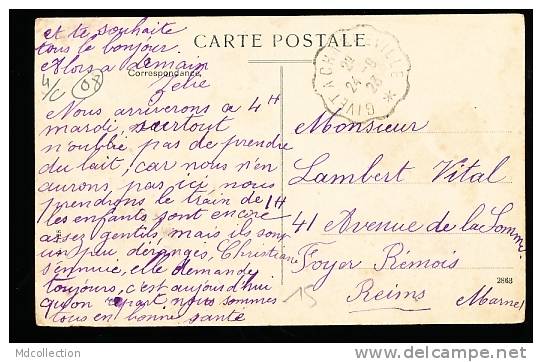 et te souhaite
tous le bonjour.
Alors a demain
CARTE POSTALE
Correspondance
4/C
GIVET A CHARLEVILLE
24-9
23
Nous arriverons a 4H
mardi, surtout
n'oublie pas de prendre
du lait, car nous n'en
aurons, pas ici, nous
prendrons le train de 1H
les enfants sont encore
assez gentils, mais ils sont
un peu dérangés, Christiane
s'ennuie, elle demande
toujours, c'est aujourd'hui
qu'on repart, nous sommes
tous en bonne santé
Monsieur
Lambert Vital
41 Avenue de la Somme.
Foyer Rémois
Reims Marne
2868
15
Mdcollection
©delcampe.net